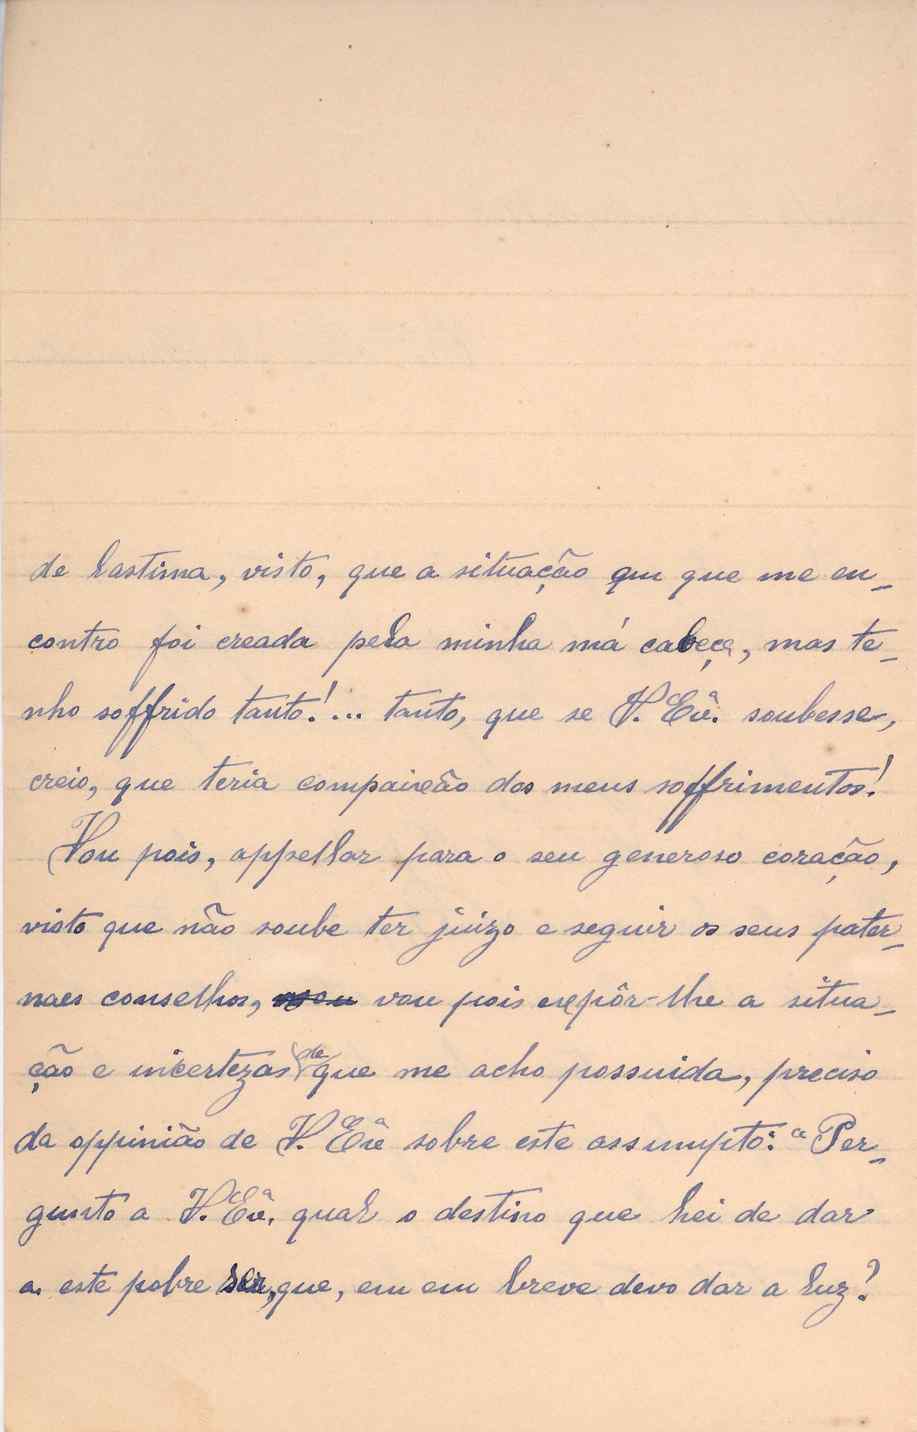 de lastima, visto, que a situação em que me en-
contro foi creada pela minha má cabeça, mas te-
nho soffrido tanto!... tanto, que se V. Exª. soubesse,
creio, que teria compaixão dos meus soffrimentos!
Vou pois, appellar para o seu generoso coração,
visto que não soube ter juizo e seguir os seus pater-
naes conselhos, vou pois expôr-lhe a situa-
ção e incertezas de que me acho possuida, preciso
da oppinião de V. Exª sobre este assumpto: "Per-
gunto a V. Exª. qual o destino que hei de dar
a este pobre ser, que, em em breve devo dar a luz?